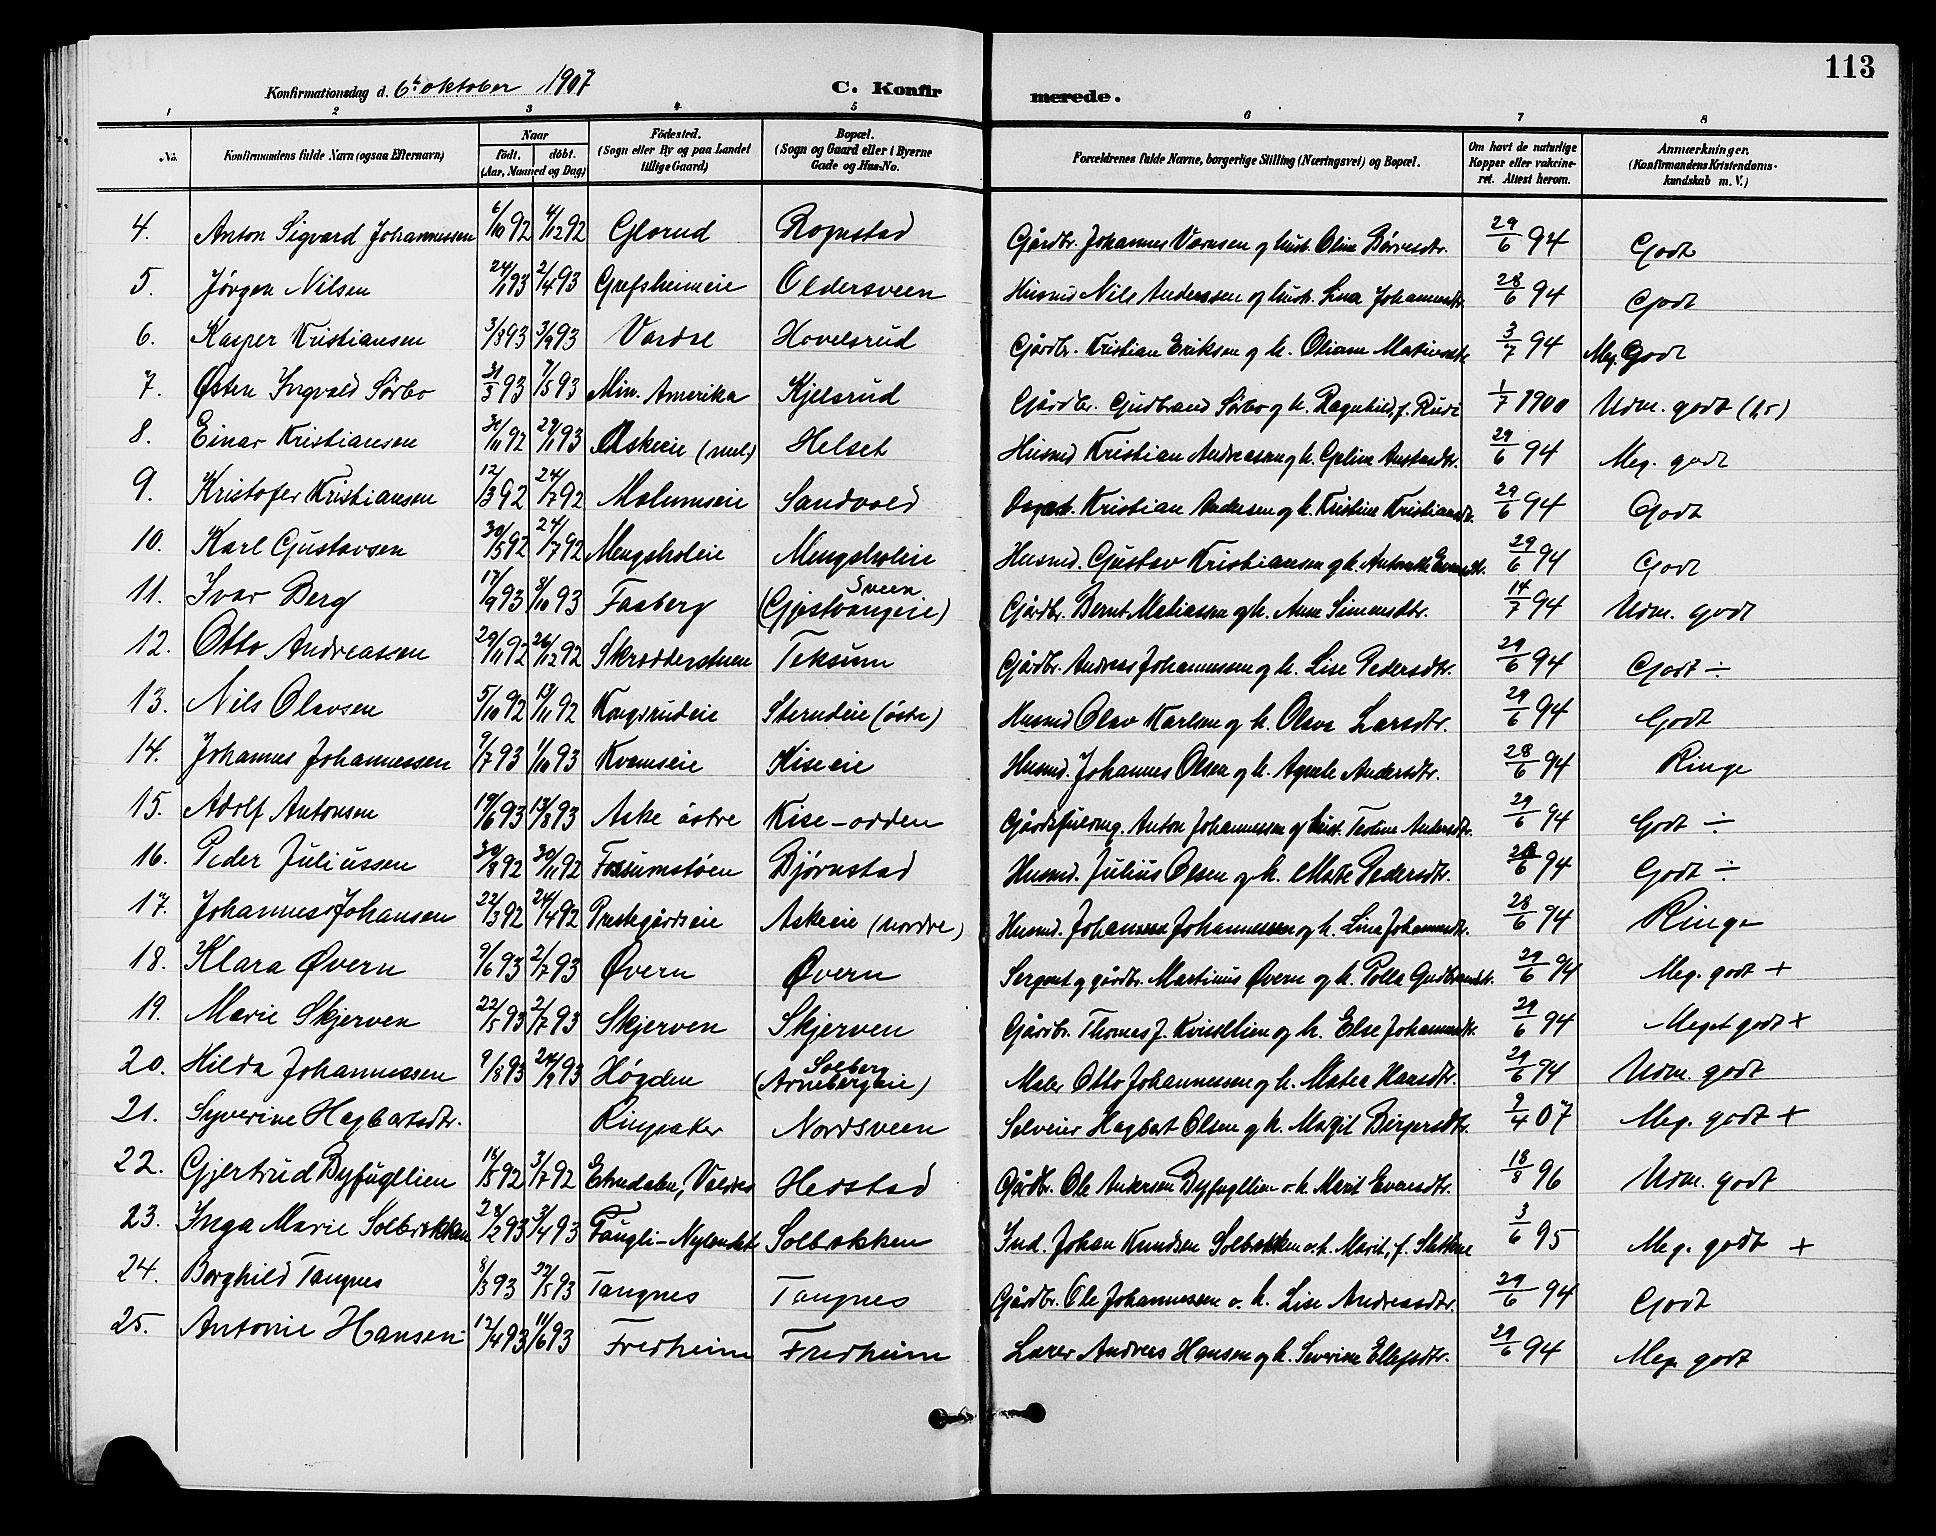 113
Konfirmationsdag d. 6te oktober 1907 C. Konfirmerede.
1 2 3 4 5 6 7 8
No. Konfirmandens fulde Navn (ogsaa Efternavn) Naar födt. döbt. (Aar, Maaned og Dag) Födested. (Sogn eller By og paa Landet tillige Gaard) Bopæl. (Sogn og Gaard eller i Byerne Gade og Hus-No. Forældrenes fulde Navne, borgerlige Stilling (Næringsvei) og Bopæl. Om havt de naturlige Kopper eller vakcineret. Attest herom. Anmærkninger, (Konfirmandens Kristendomskundskab m. V.)
4. Anton Sigvard Johannessen 6/10 92 4/12 92 Glorud Rognstad Gårdbr. Johannes og hust. Oline 29/6 94 Godt
5. Jørgen Nilsen 24/1 93 2/4 93 Grefsheimeie Oldersveen Husmd Nils Anderssen og hust. Lina Johannesdtr. 28/6 94 Godt
6. Kasper Kristiansen 3/8 93 3/9 93 Vardal Hovelsrud Gårdbr. Kristian Eriksen og h. 3/7 94 Meg. Godt
7. Østen Ingvald Sørbo 31/3 93 7/5 93 Min. Amerika Kjelsrud Gårdbr. Gudbrand Sørbo og h. Ragnhild, f. Rudi 1/7 1900 Udm. godt
8. Einar Kristiansen 30/11 92 29/1 93 Askeie Helset Husmd Kristian Andreassen og h. 29/6 94 Meg. godt
9. Kristofer Kristiansen 12/3 92 24/7 92 Malumseie Sandvold Kristian Andersen og h. Kristine Kristiansdtr. 29/6 94 Godt
10. Karl Gustavsen 30/5 92 24/7 92 Mengsholeie Mengsholeie Husmd. Gustav Kristiansen og h. 29/6 94 Godt
11. Ivar Berg 17/9 93 8/10 93 Faaberg Sveen (Gjestvangeie) Gårdbr. Bernt Matiassen og h. Anne Simensdtr. 14/7 94 Udm. godt
12. Otto Andreassen 29/11 92 26/12 92 Skrædderstuen Teksum Gårdbr. Andreas Johannessen og h. Lise Pedersdtr. 29/6 94 Godt ÷
13. Nils Olavsen 5/10 92 13/11 92 Kongsrudeie Sterudeie (östre) Husmd Olav Karlsen og h. Olava Larsdtr. 29/6 94 Godt
14. Johannes Johannessen 9/7 93 1/10 93 Kvemseie Kiseeie Husmd. Johannes Olsen og h. Agnete Andersdtr. 28/6 94 Ringe
15. Adolf Antonsen 19/6 93 13/8 93 Aske östre Kise-odden Anton Johannessen og hust. Andersdtr. 29/6 94 Godt ÷
16. Peder Juliussen 30/8 92 30/11 92 Fossumstøen Bjørnstad Husmd. Julius Olsen og h. Mate Pedersdtr. 28/6 94 Godt ÷
17. Johannes Johansen 22/3 92 24/4 92 Prestegårdseie Askeeie (nordre) Husmd. Johannes Johannessen og h. Lina Johannesdtr. 28/6 94 Ringe
18. Klara Øvern 9/6 93 2/7 93 Øvern Øvern Sergent og gårdbr. Martinius Øvern og h. Polla Gudbrandsdtr. 29/6 94 Meg. godt +
19. Marie Skjerven 22/5 93 2/7 93 Skjerven Skjerven Gårdbr. Thomas J. Kvisllien og h. Else Johannesdtr. 29/6 94 Meget godt +
20. Hilda Johannessen 9/8 93 24/9 93 Høgden Solberg (Arnebergeie) Maler Otto Johannessen og h. Matea Hansdtr. 29/6 94 Udm. godt
21. Syverine Hagbartsdtr. Ringsaker Nordsveen Selveier Hagbart Olsen og h. Magit Birgersdtr. 9/4 07 Meg. godt +
22. Gjertrud Byfugllien 16/5 92 3/7 92 Etnedalen, Valdres Hedstad Gårdbr. Ole Andersen Byfugllien o. h. Marit Evensdtr. 18/8 96 Udm. godt
23. Inga Marie Solbrekken 28/2 93 3/4 93 Solbrekken Ind. Johan Knudsen Solbrekken o. h. Marit, f. 3/6 95 Meg. godt +
24. Borghild Tangnes 8/3 93 22/5 93 Tangnes Tangnes Gårdbr. Ole Johannessen o. h. Lise Andreasdtr. 29/6 94 Godt
25. Antonie Hansen 12/4 93 11/6 93 Fredheim Fredheim Lærer Andreas Hansen og h. Severine Ellefsdtr. 29/6 94 Meg. godt